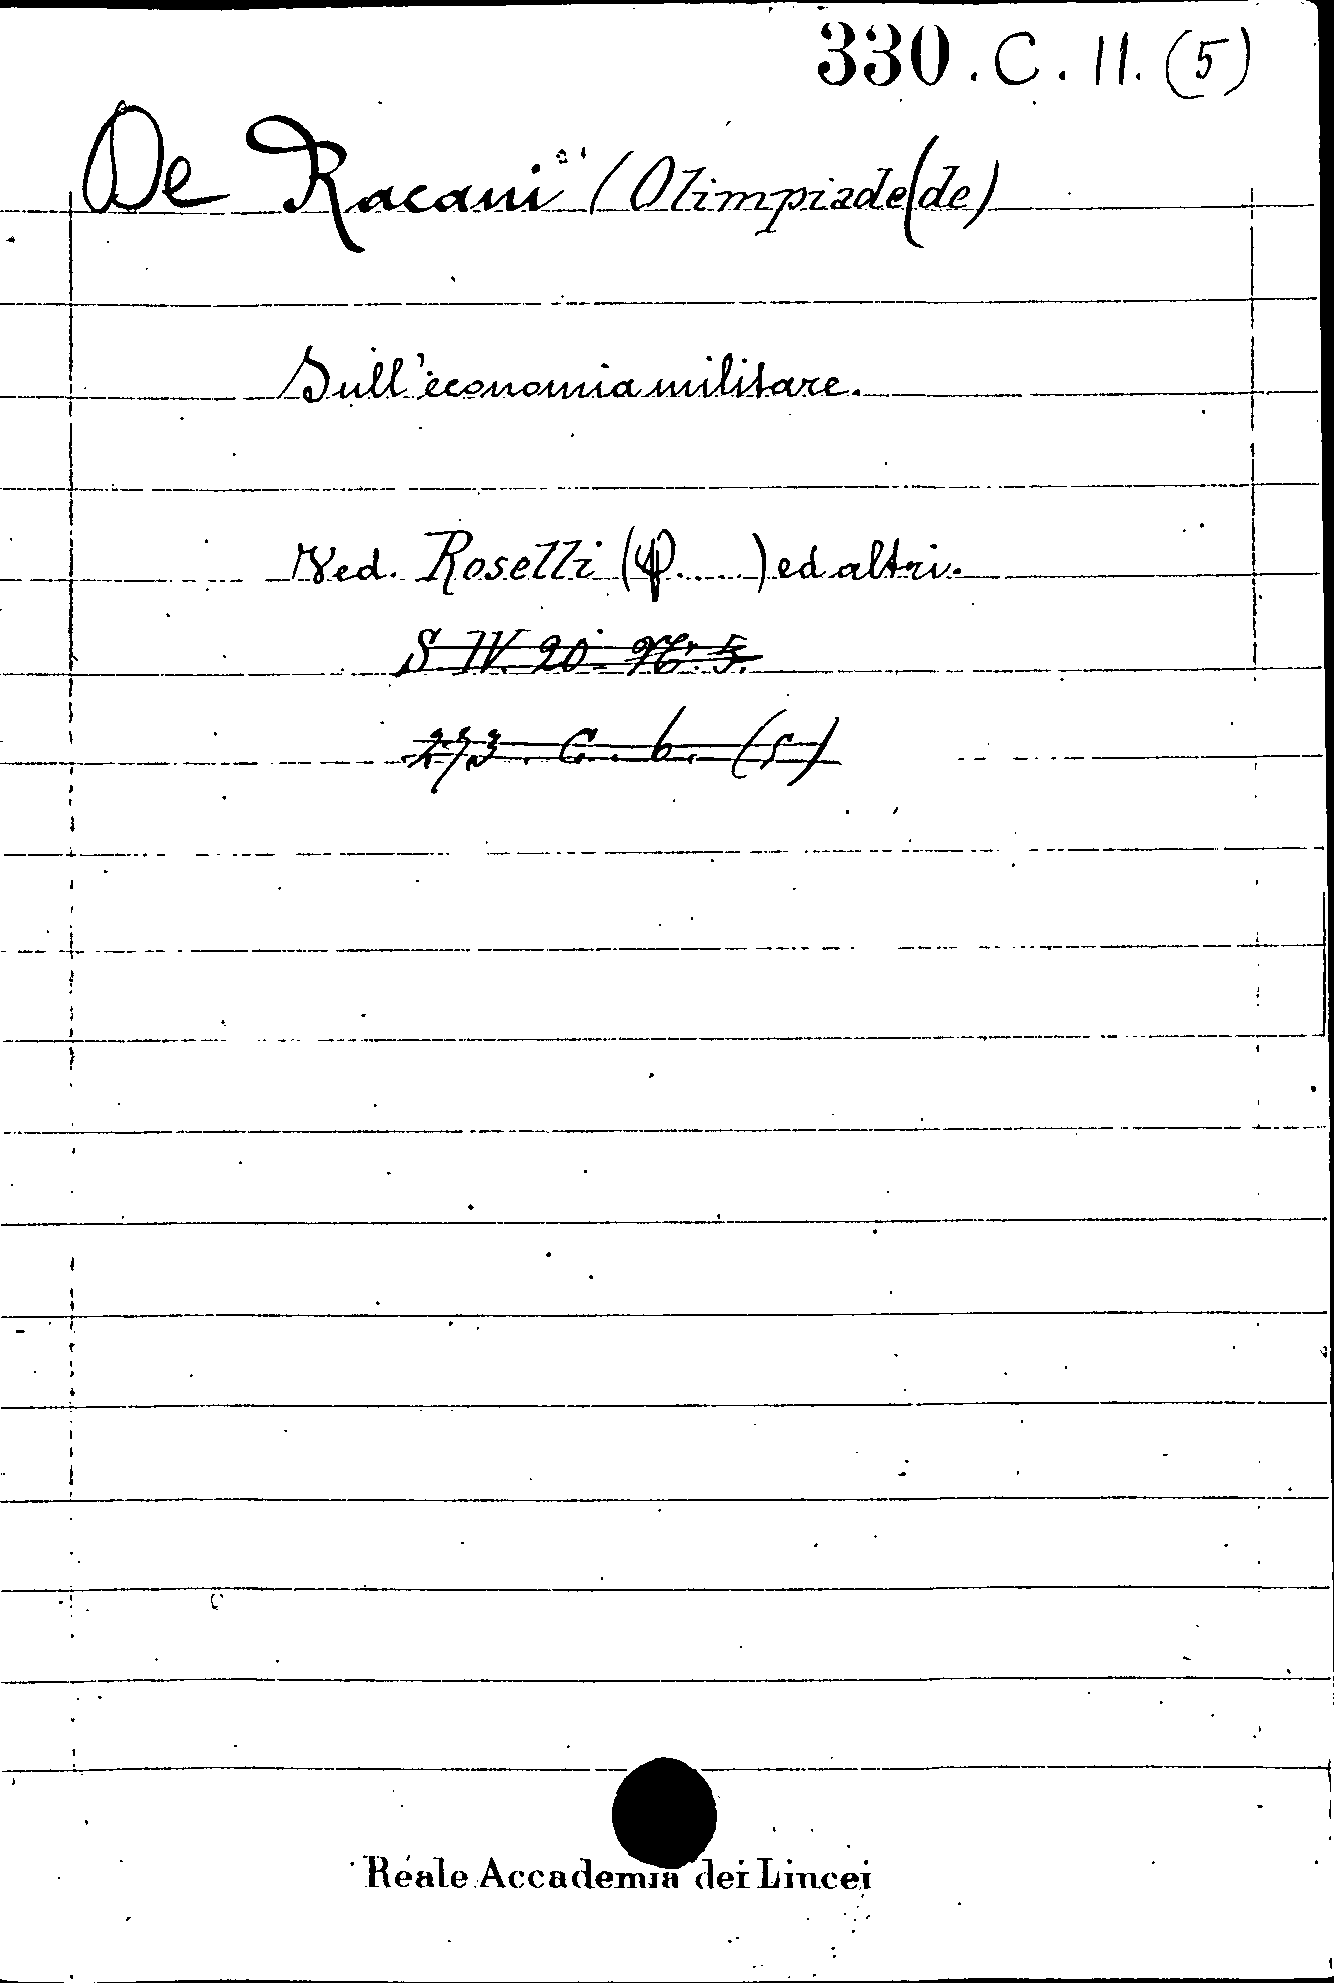 330. C. 11. (5)
De Racani (Olimpiade (de)
Sull'economia militare.
Ved. Roselli (P.....) ed altri.
S IV. 20. 5.
273. C. b. (5)
Reale Accademia dei Lincei